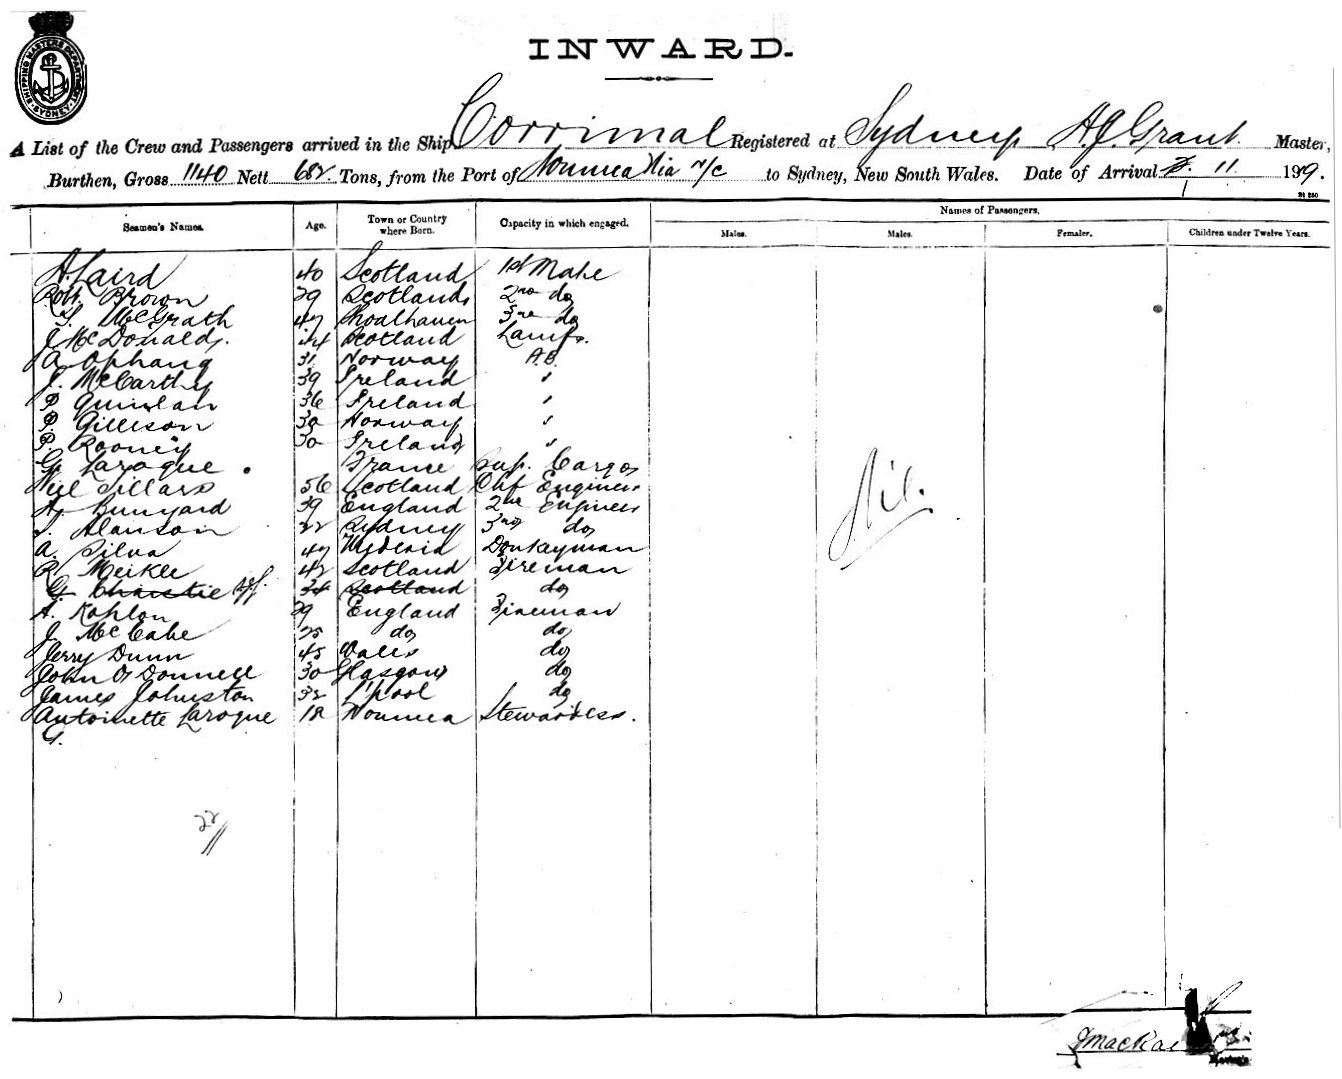 SHIPPING MASTERS DEPARTMENT SYDNEY
INWARD.
A List of the Crew and Passengers arrived in the Ship Corrimal Registered at Sydney A.J. Grant. Master,
Burthen, Gross 1140 Nett 682 Tons, from the Port of Noumea Via N/C to Sydney, New South Wales. Date of Arrival 11. 199.
Seamen's Names. Age. Town or Country where Born. Capacity in which engaged. Names of Passengers.
Males. Males. Females. Children under Twelve Years.
A. Laird 40 Scotland 1st Mate
Robt. Brown 29 Scotland 2nd do
McGrath 47 Shoalhaven 3rd do
J. McDonald. 44 Scotland Lamps.
A. Ophang 31 Norway A.B.
J. McCarthy 39 Ireland "
P. Quinlan 36 Ireland "
P. Gilleson 30 Norway "
P. Rooney 30 Ireland "
G. Laroque France Sup. Cargo
Neil Sillars 56 Scotland Chf Engineer
A. Bunyard 39 England 2nd Engineer
Alanson 22 Sydney 3rd do
A. Silva 47 Donkeyman
R. Meikle 42 Scotland Fireman
G. Christie 34 Scotland do
A. Kohlon 29 England Fireman
J. McCabe 25 do do
Jerry Dunn 45 Wales do
John O'Donnell 30 Glasgow do
James Johnston 32 L'pool do
Antoinette Laroque 18 Noumea Stewardess.
G.
Nil.
22
J Mackae